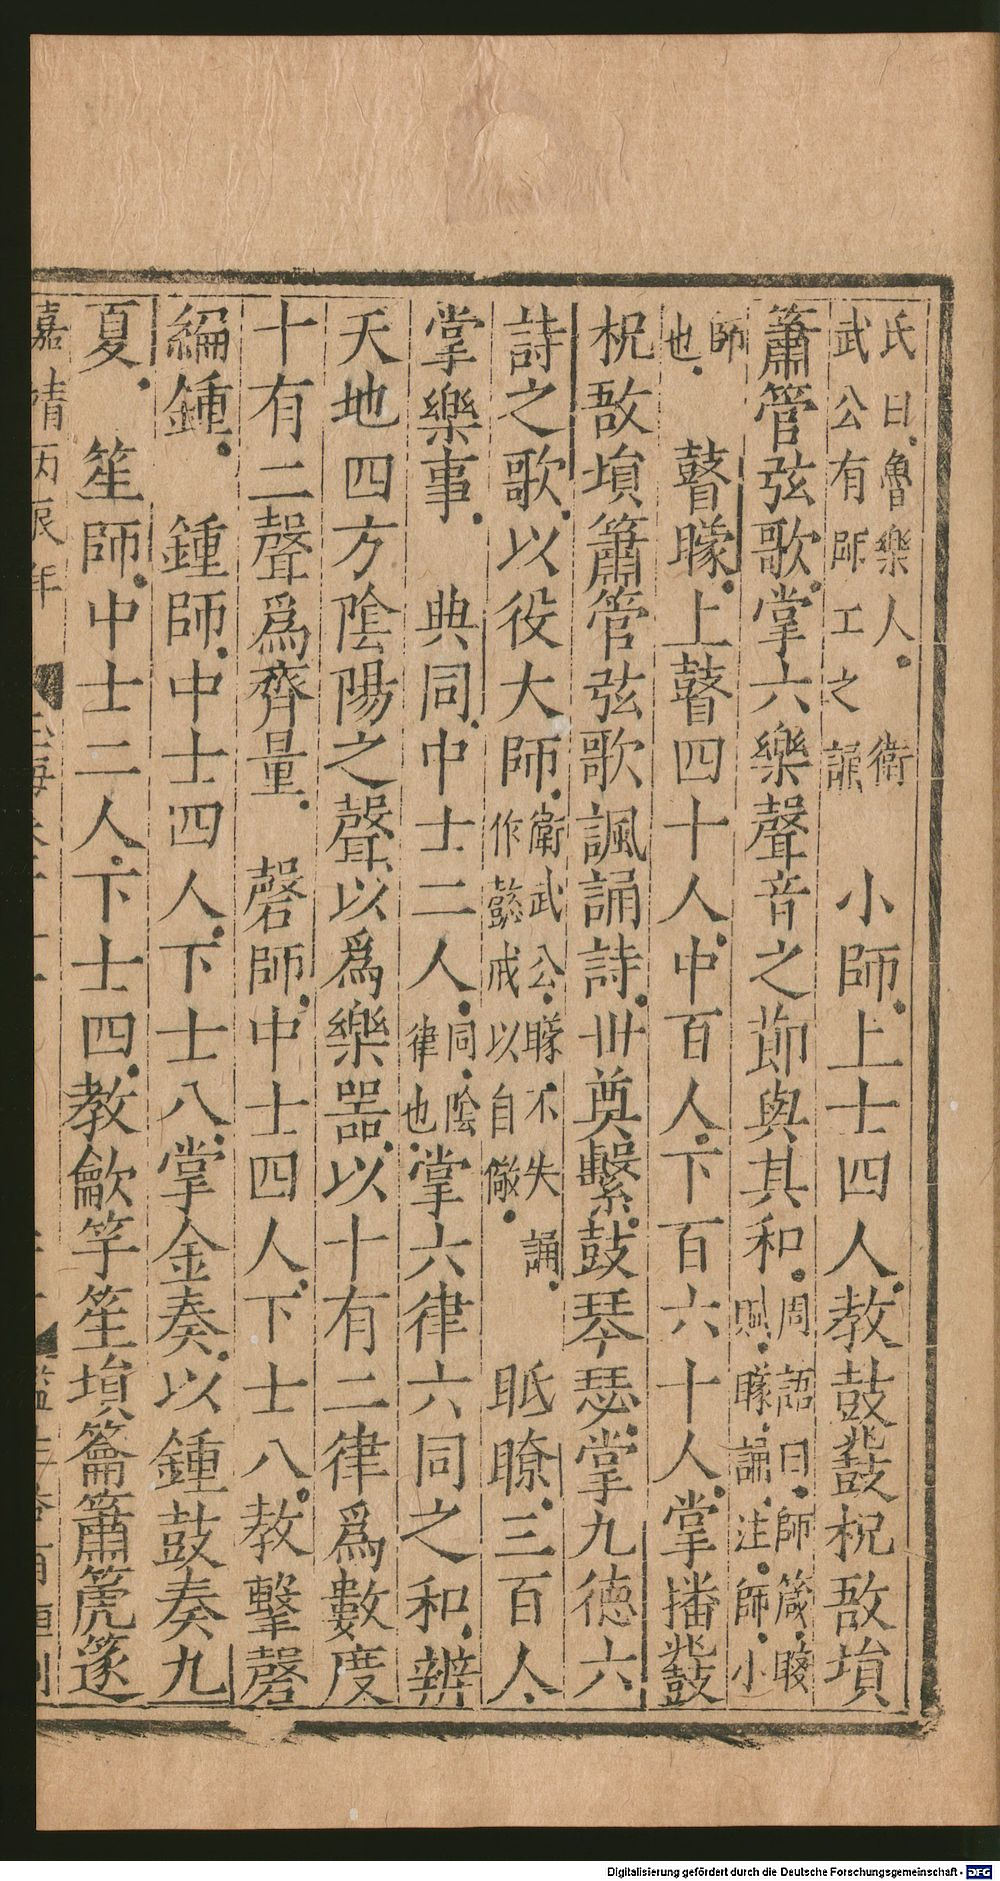 氏曰魯樂人。　衛
武公有師工之誦　小師。上士四人。教鼓鼗柷敔塤
簫管弦歌。掌六樂聲音之節與其和。周語曰。師箴。瞍
賦。矇誦。注。師。小
師
也。　瞽矇。上瞽四十人。中百人。下百六十人。掌播鼗
柷敔塤簫管弦歌諷誦詩。世奠繫。鼓琴瑟。掌九德六
詩之歌。以役大師。衛武公。矇不失誦。
作懿戒以自儆。　眂瞭。三百人。
掌樂事。　典同。中士二人。同。陰
律也。掌六律六同之和。辨
天地四方陰陽之聲。以爲樂器。以十有二律爲數度
十有二聲爲齊量。　磬師。中士四人。下士八。教擊磬
編鍾。　鍾師。中士四人。下士八。掌金奏。以鍾鼓奏九
夏。　笙師。中士二人。下士四。教龡竽笙塤籥簫篪篴
嘉靖丙辰年
玉海卷
監生
刊
Digitalisierung gefördert durch die Deutsche Forschungsgemeinschaft - DFG